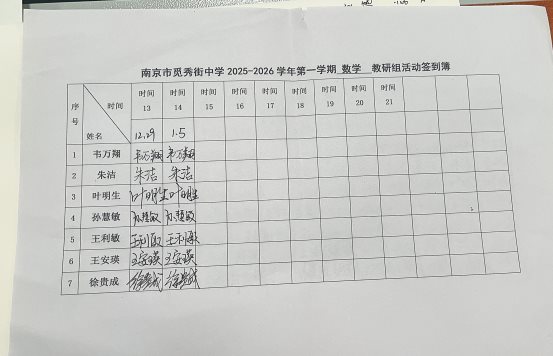 南京市觅秀街中学 2025-2026 学年第一学期 数学 教研组活动签到簿
序号 时间 姓名 时间 13 时间 14 时间 15 时间 16 时间 17 时间 18 时间 19 时间 20 时间 21
12.29 1.5
1 韦万翔 韦万翔 韦万翔
2 朱洁 朱洁 朱洁
3 叶明生 叶明生 叶明生
4 孙慧敏 孙慧敏 孙慧敏
5 王利敏 王利敏 王利敏
6 王安瑛 王安瑛 王安瑛
7 徐贵成 徐贵成 徐贵成